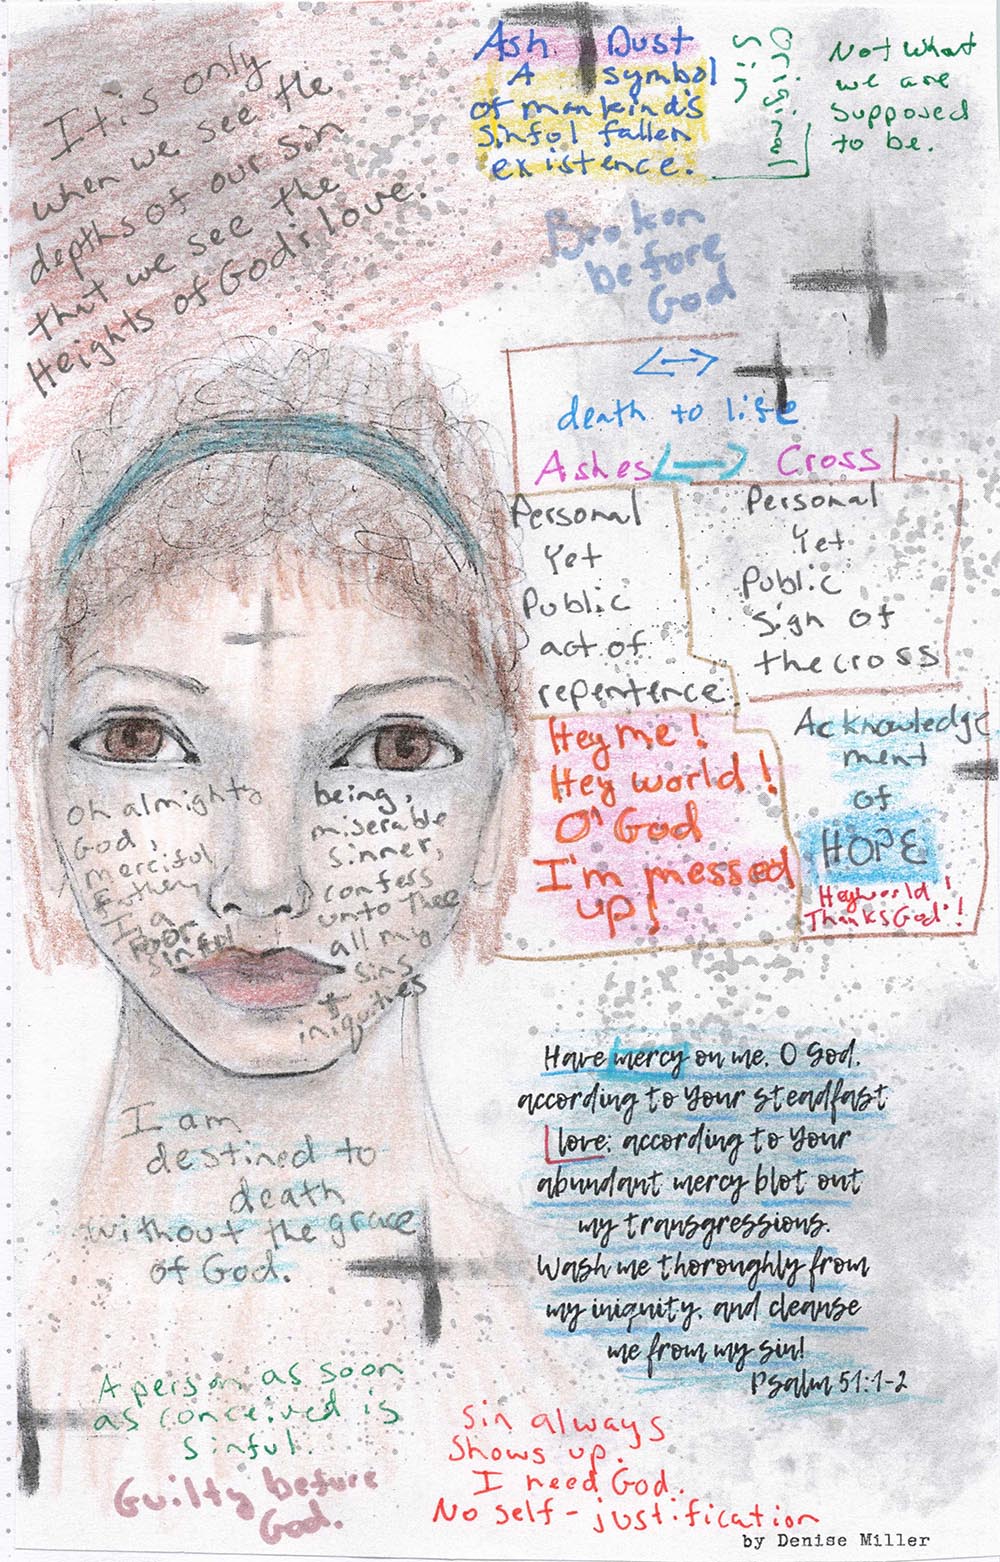 It is only
when we see the
depths of our sin
that we see the
Heights of God's love.
Ash. Dust
A symbol
of mankind's
sinful fallen
existence.
Original
Sin
Not what
we are
supposed
to be.
Broken
before
God
death to life
Ashes Cross
Personal
Yet
Public
act of
repentence
Personal
Yet
Public
sign of
the cross
Hey me!
Hey world!
O' God
I'm messed
up!
Acknowledge
ment
of
HOPE
Hey world!
Thanks God!!
Oh almighty
God,
merciful
father,
I a
poor
sinful
being,
miserable
sinner,
confess
unto Thee
all my
sins
+
iniquities
I am
destined to
death
without the grace
of God.
Have mercy on me, O God,
according to Your steadfast
love; according to Your
abundant mercy blot out
my transgressions.
Wash me thoroughly from
my iniquity, and cleanse
me from my sin!
Psalm 51:1-2
A person as soon
as conceived is
sinful.
Guilty before
God.
Sin always
Shows up.
I need God.
No self-justification
by Denise Miller